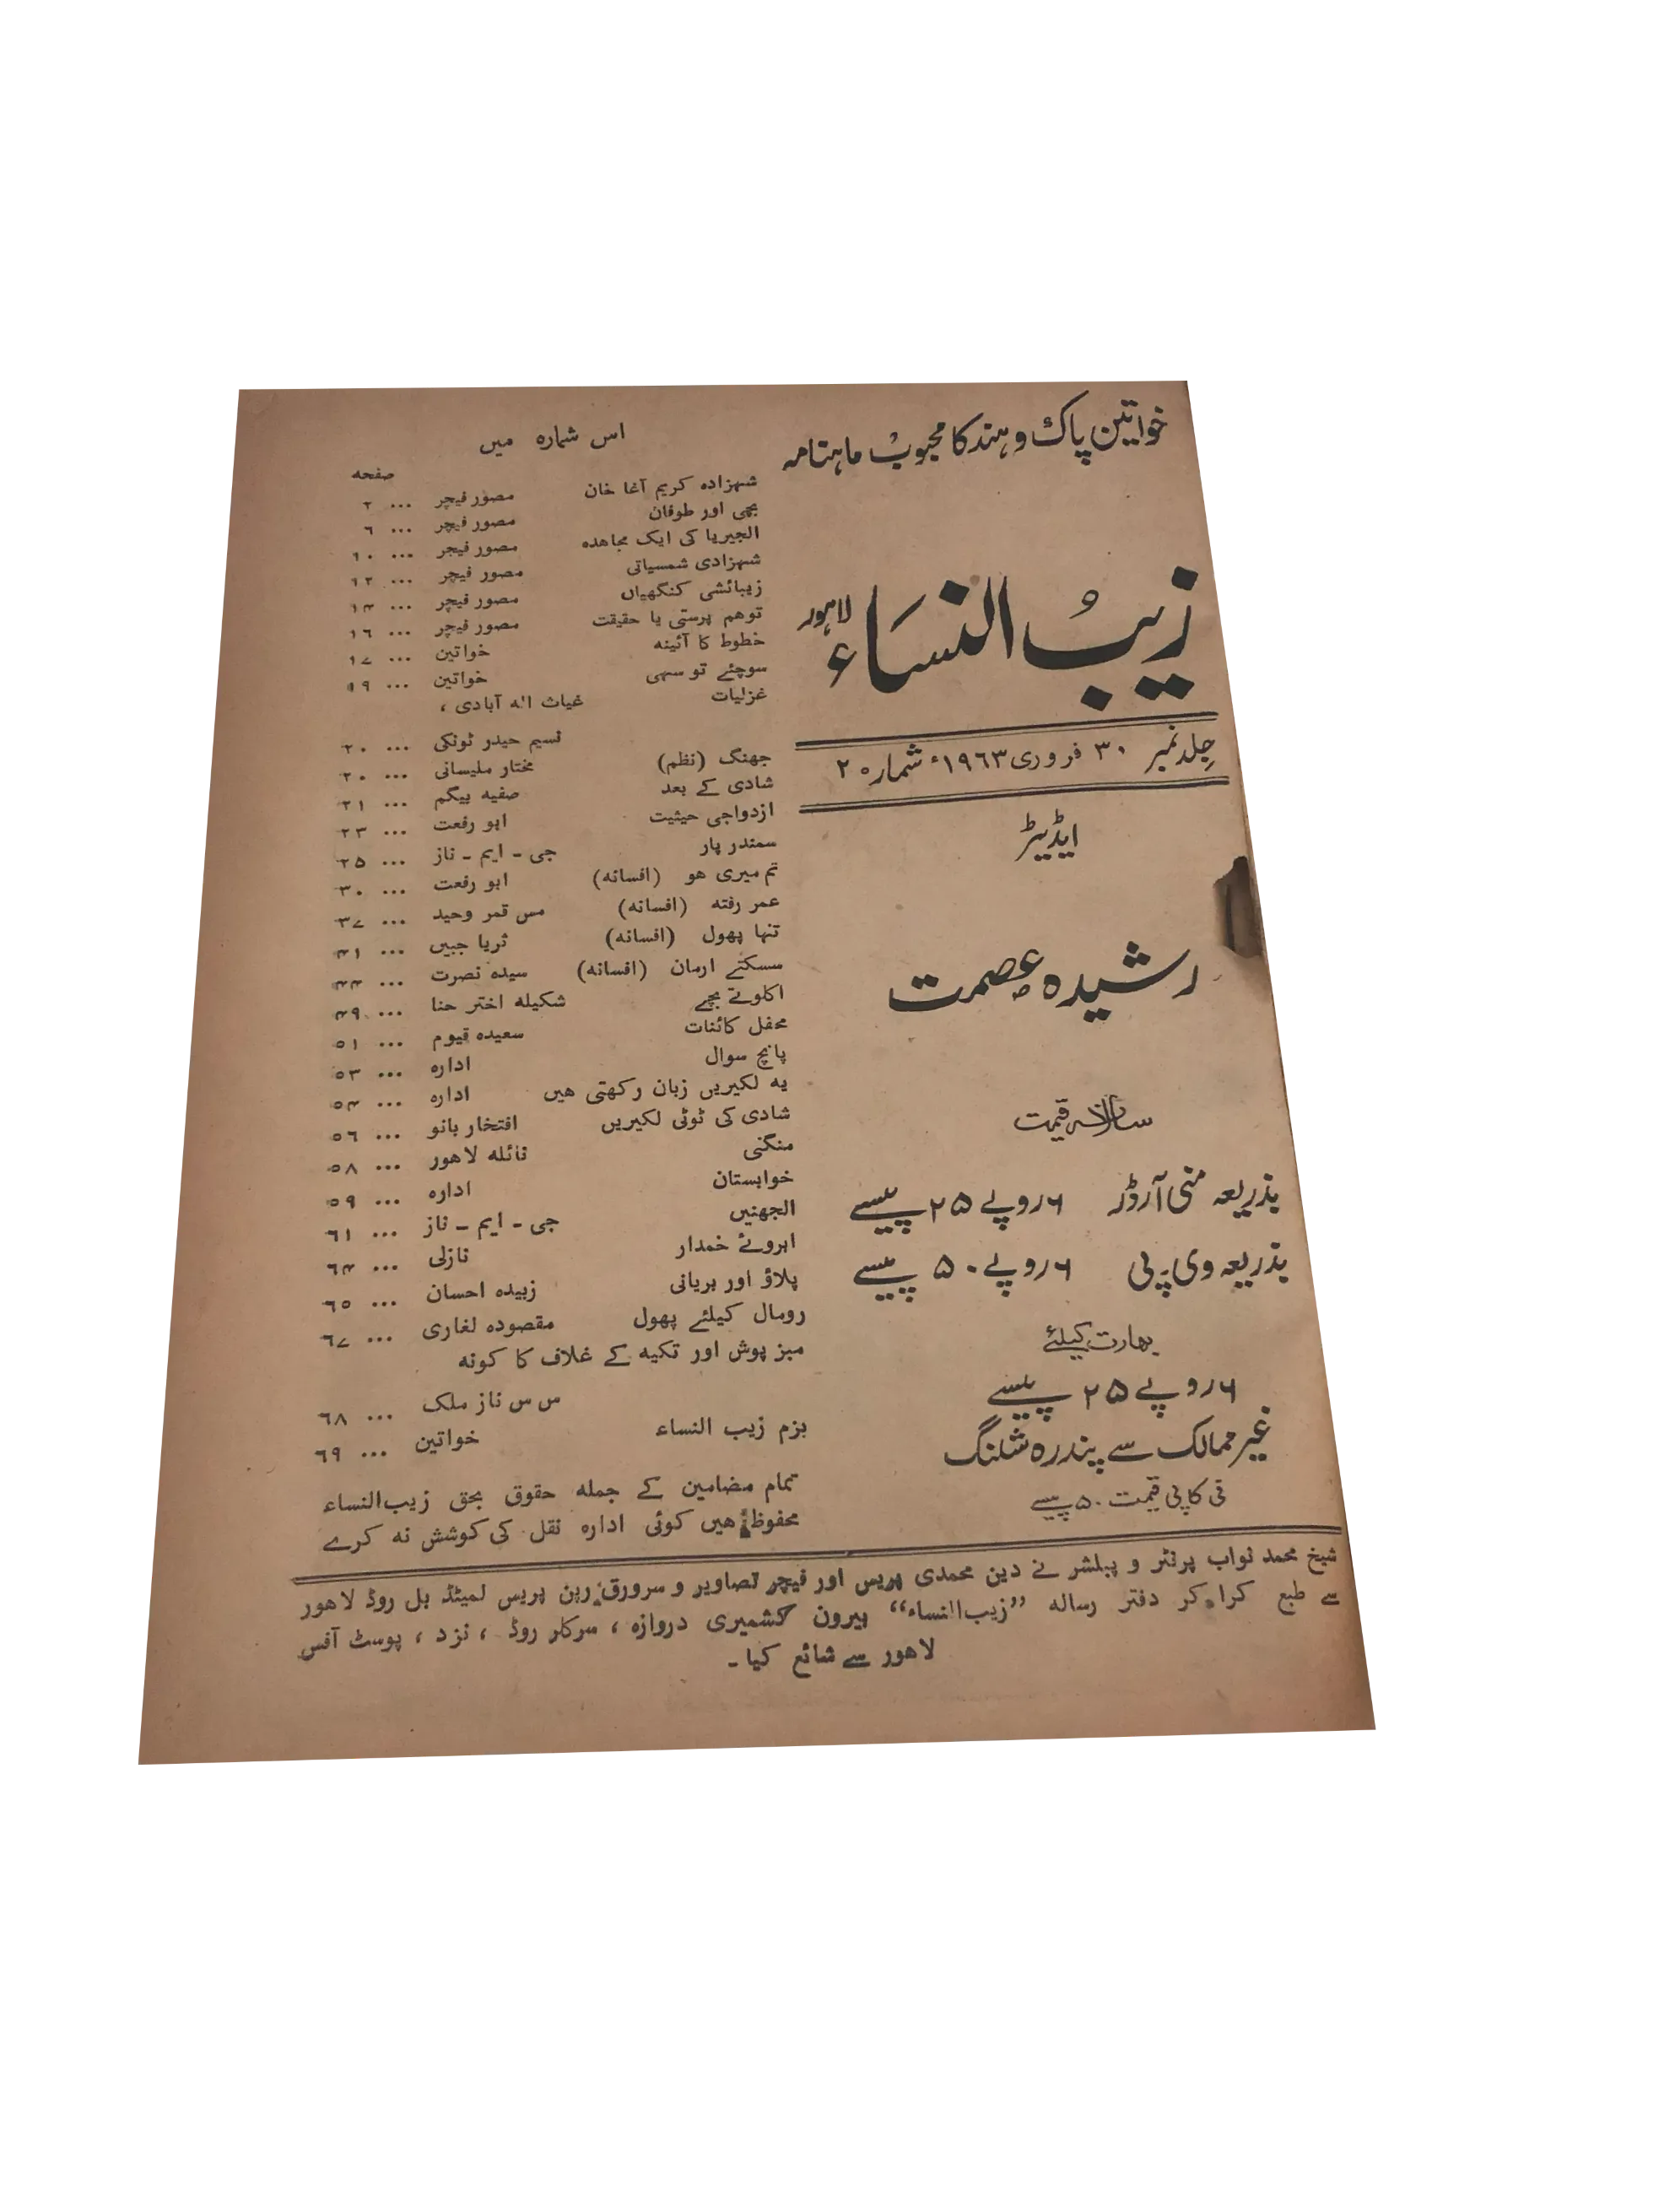 خواتین پاک و ہند کا محبوب ماہنامہ
زیب النساء لاہور
جلد نمبر ۳۰ فروری ۱۹۶۳ء شمارہ ۲
ایڈیٹر
رشیدہ عصمت
سالانہ قیمت
بذریعہ منی آرڈر ۶ روپے ۲۵ پیسے
بذریعہ وی پی ۶ روپے ۵۰ پیسے
بھارت کیلئے
۶ روپے ۲۵ پیسے
غیر ممالک سے پندرہ شلنگ
فی کاپی قیمت ۵۰ پیسے
اس شمارہ میں
صفحہ
شہزادہ کریم آغا خان مصور فیچر ... ۲
بچی اور طوفان مصور فیچر ... ۶
الجیریا کی ایک مجاھدہ مصور فیچر ... ۱۰
شہزادی شمسیاتی مصور فیچر ... ۱۲
زیبائشی کنگھیاں مصور فیچر ... ۱۴
توھم پرستی یا حقیقت مصور فیچر ... ۱۶
خطوط کا آئینہ خواتین ... ۱۷
سوچئے تو سہی خواتین ... ۱۹
غزلیات غیاث الہ آبادی ،
نسیم حیدر ٹونکی ... ۲۰
جھنگ (نظم) مختار ملیسانی ... ۲۰
شادی کے بعد صفیہ بیگم ... ۲۱
ازدواجی حیثیت ابو رفعت ... ۲۳
سمندر پار جی - ایم - ناز ... ۲۵
تم میری ھو (افسانہ) ابو رفعت ... ۳۰
عمر رفتہ (افسانہ) مس قمر وحید ... ۳۷
تنہا پھول (افسانہ) ثریا جبیں ... ۴۱
سسکتے ارمان (افسانہ) سیدہ نصرت ... ۴۴
اکلوتے بچے شکیلہ اختر حنا ... ۴۹
محفل کائنات سعیدہ قیوم ... ۵۱
پانچ سوال ادارہ ... ۵۳
یہ لکیریں زبان رکھتی ھیں ادارہ ... ۵۴
شادی کی ٹوٹی لکیریں افتخار بانو ... ۵۶
منگنی نائلہ لاھور ... ۵۸
خوابستان ادارہ ... ۵۹
الجھنیں جی - ایم - ناز ... ۶۱
ابروئے خمدار نازلی ... ۶۴
پلاؤ اور بریانی زبیدہ احسان ... ۶۵
رومال کیلئے پھول مقصودہ لغاری ... ۶۷
میز پوش اور تکیہ کے غلاف کا کونہ
س س ناز ملک ... ۶۸
بزم زیب النساء خواتین ... ۶۹
تمام مضامین کے جملہ حقوق بحق زیب النساء
محفوظ ھیں کوئی ادارہ نقل کی کوشش نہ کرے
شیخ محمد نواب پرنٹر و پبلشر نے دین محمدی پریس اور فیچر تصاویر و سرورق رپن پریس لمیٹڈ بل روڈ لاھور
سے طبع کرا کر دفتر رسالہ ”زیب النساء“ بیرون کشمیری دروازہ ، سرکلر روڈ ، نزد ، پوسٹ آفس
لاھور سے شائع کیا -